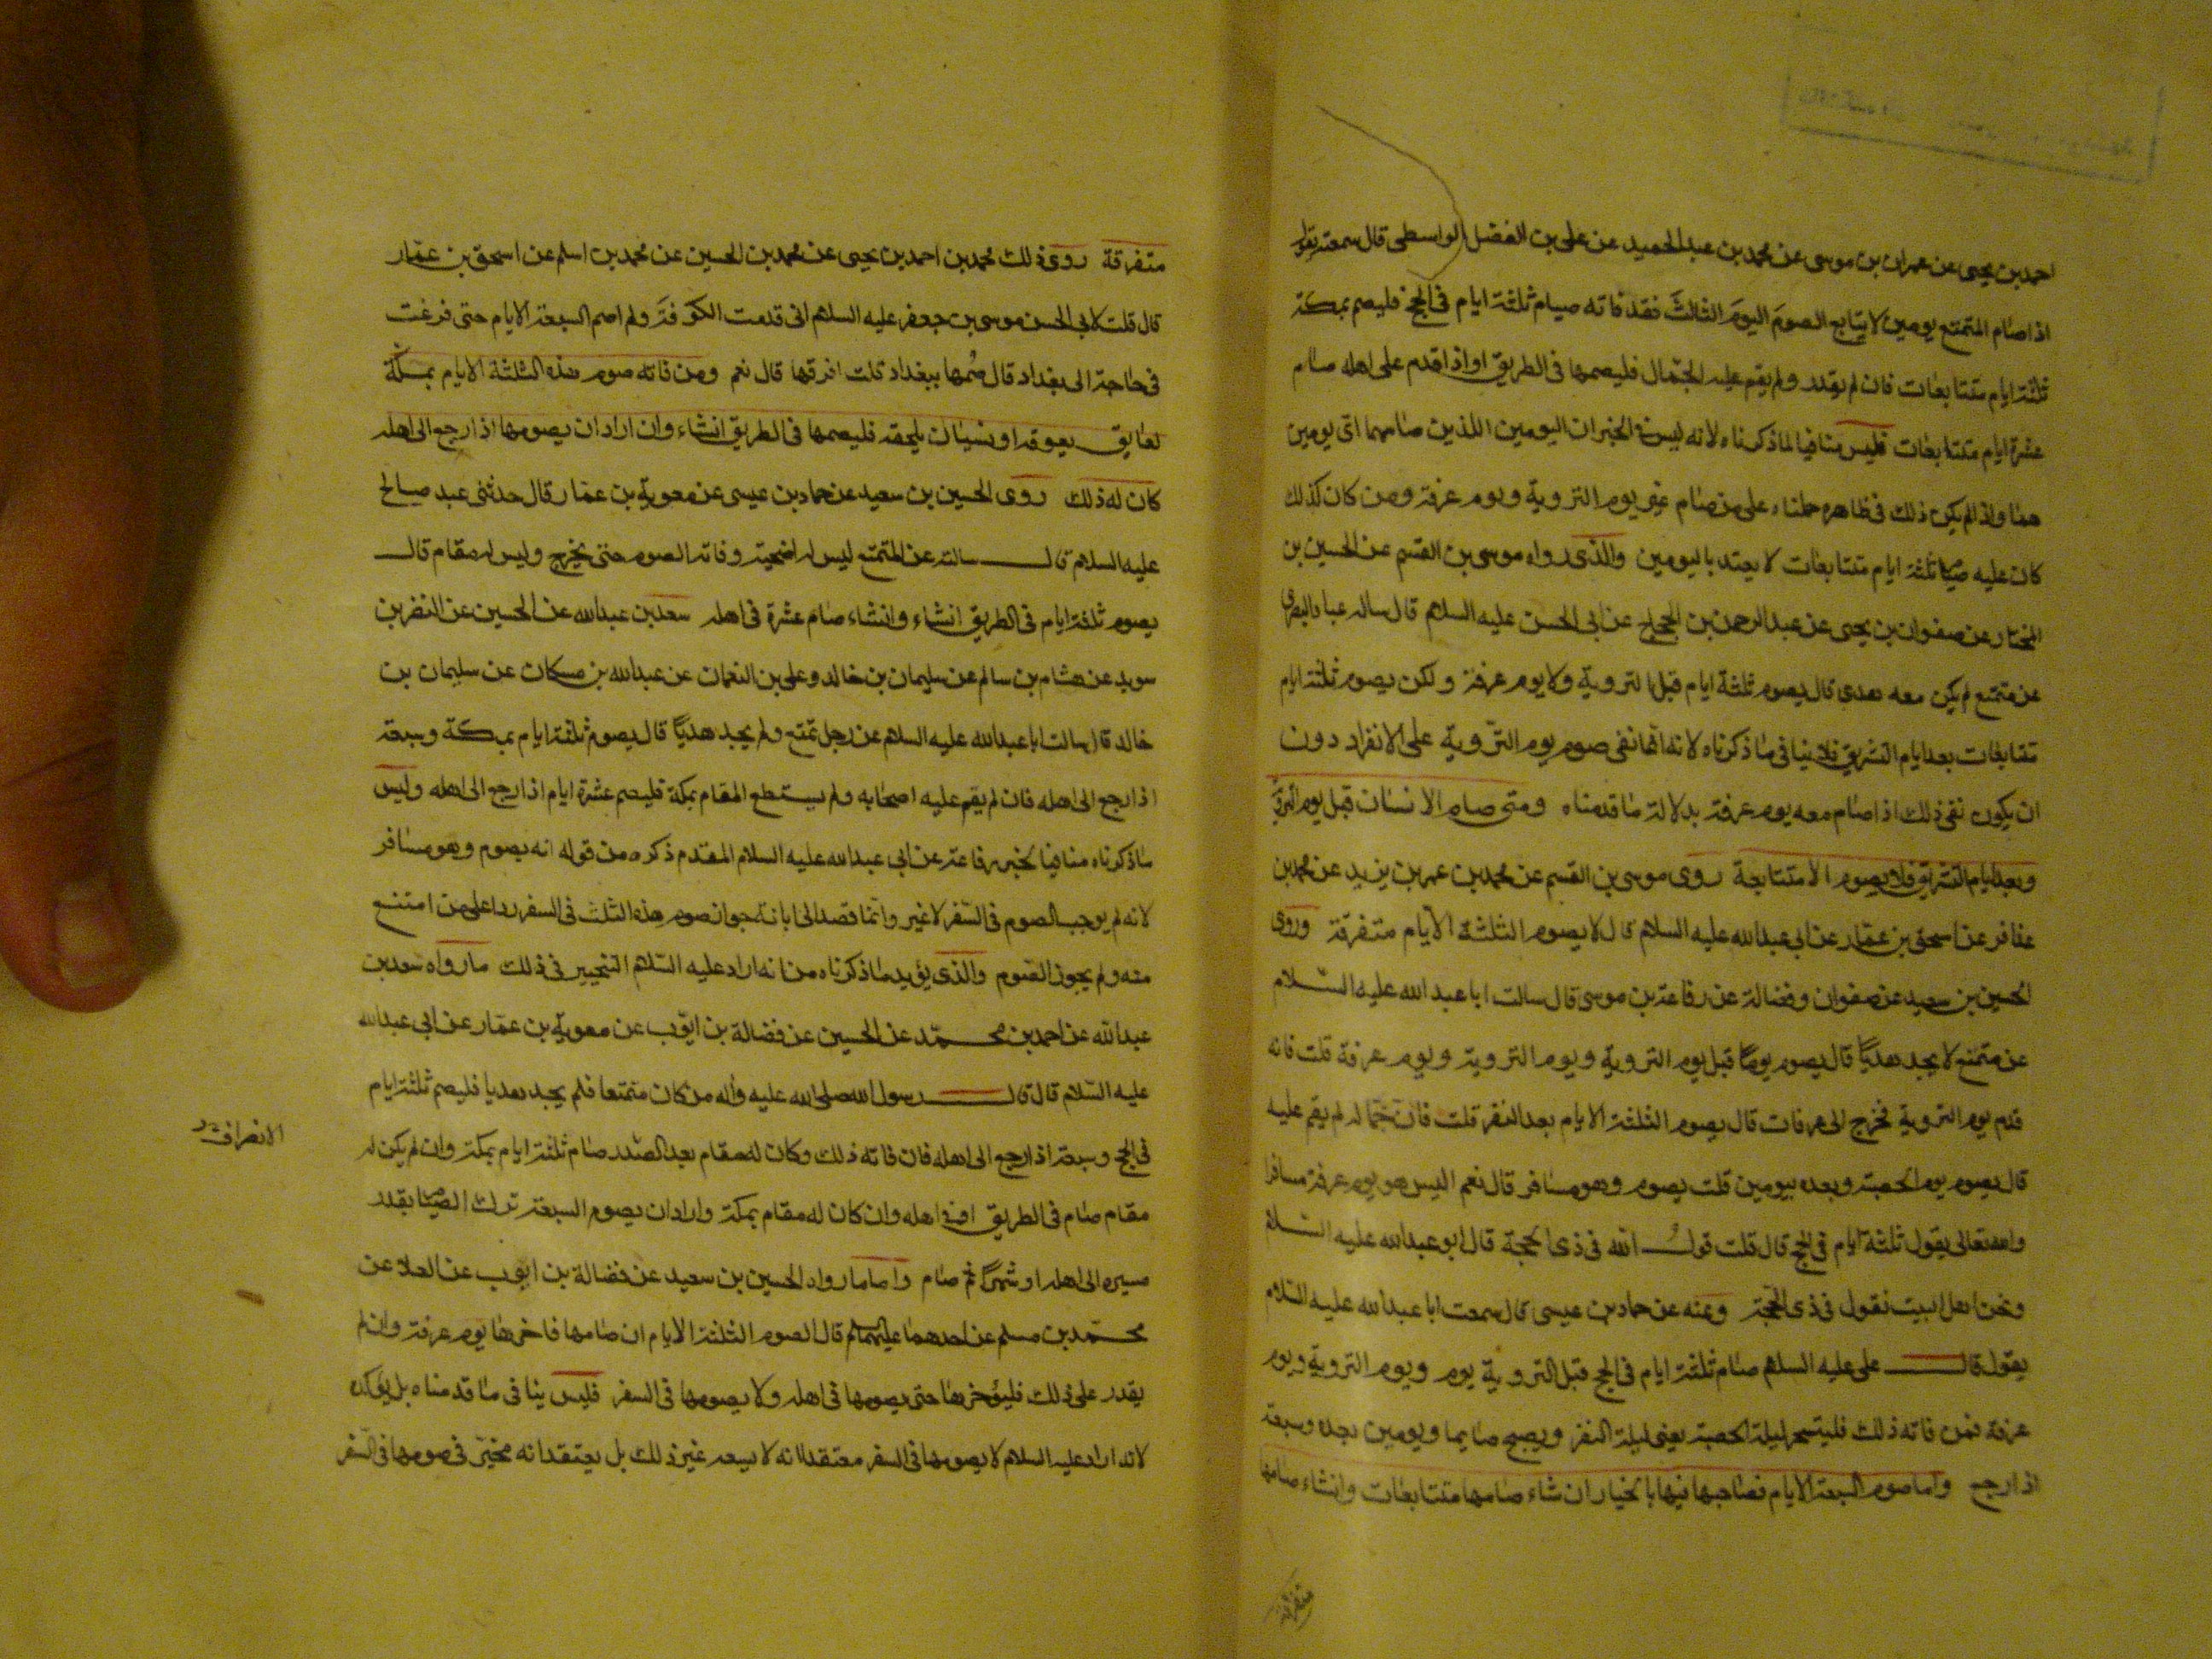 احمد بن يحيى عن عمران بن موسى عن محمد بن عبد الحميد عن على بن الفضل الواسطى قال سمعته يقول
اذا صام المتمتع يومين لا يتابع الصومَ اليومَ الثالثَ فقد فاته صيام ثلثة ايام فى الحج فليصم بمكة
ثلثة ايام متتابعات فان لم يقدر ولم يقم عليه الجمّال فليصمها فى الطريق او اذا قدم على اهله صام
عشرة ايام متتابعات فليس منافيا لما ذكرناه لانه ليس فى الخبر ان اليومين اللذين صامهما اىّ يومين
هما واذا لم يكن ذلك فى ظاهره حملناه على من صام غير يوم التروية ويوم عرفة ومن كان كذلك
كان عليه صيام ثلثة ايام متتابعات لا يعتد باليومين والذى رواه موسى بن القسم عن الحسين بن
المختار عن صفوان بن يحيى عن عبد الرحمن بن الحجاج عن ابى الحسن عليه السلام قال ساله عباد البصرى
عن متمتع لم يكن معه هدى قال يصوم ثلثة ايام قبل التروية ولا يوم عرفة ولكن يصوم ثلثة ايام
متتابعات بعد ايام التشريق فلا ينافى ما ذكرناه لانه انما نفى صوم يوم التّروية على الانفراد دون
ان يكون نفى ذلك اذا صام معه يوم عرفة بدلالة ما قدمناه ومتى صام الانسان قبل يوم التروية
وبعد ايام التشريق فلا يصوم الا متتابعة روى موسى بن القسم عن محمد بن عمر بن يزيد عن محمد بن
عذافر عن اسحق بن عمّار عن ابى عبد الله عليه السلام قال لا يصوم الثلثة الايام متفرقة وروى
الحسين بن سعيد عن صفوان وفضالة عن رفاعة بن موسى قال سالت ابا عبد الله عليه السّلام
عن متمتع لا يجد هديًا قال يصوم يومًا قبل يوم التروية ويوم التروية ويوم عرفة قلت فانه
قدم يوم التروية فخرج الى عرفات قال يصوم الثلثة الايام بعد النفر قلت فان جمّاله لم يقم عليه
قال يصوم يوم الحصبة وبعده بيومين قلت يصوم وهو مسافر قال نعم اليس هو يوم عرفة مسافرا
والله تعالى يقول ثلثة ايام فى الحج قال قلت قولُ الله فى ذى الحجة قال ابو عبد الله عليه السّلام
ونحن اهل البيت نقول فى ذى الحجّة وعنه عن حماد بن عيسى قال سمعت ابا عبد الله عليه السّلام
يقول قال على عليه السلام صام ثلثة ايام فى الحج قبل التروية يوم ويوم التروية ويوم
عرفة فمن فاته ذلك فليتسحر ليلة الحصبة يعنى ليلة النفر ويصبح صايما ويومين بعده وسبعة
اذا رجع واما صوم السبعة الايام فصاحبها فيها بالخيار ان شاء صامها متتابعات وان شاء صامها
متفرقة
متفرقة روى ذلك محمد بن احمد بن يحيى عن محمد بن الحسين عن محمد بن اسلم عن اسحق بن عمّار
قال قلت لابى الحسن موسى بن جعفر عليه السلام انى قدمت الكوفة ولم اصم السبعة الايام حتى فرغت
فى حاجة الى بغداد قال صُمها ببغداد قلت افرقها قال نعم ومن فاته صوم هذه الثلثة الايام بمكّة
لعايق يعوقه او نسيان يلحقه فليصمها فى الطريق انشاء وان اراد ان يصومها اذا رجع الى اهله
كان له ذلك روى الحسين بن سعيد عن حماد بن عيسى عن معوية بن عمّار قال حدثنى عبد صالح
عليه السلام قال سالته عن المتمتع ليس له اضحية وفاته الصوم حتى يخرج وليس له مقام قال
يصوم ثلثة ايام فى الطريق انشاء وانشاء صام عشرة فى اهله سعد بن عبد الله عن الحسين عن النضر بن
سويد عن هشام بن سالم عن سليمان بن خالد وعلى بن النعمان عن عبد الله بن مسكان عن سليمان بن
خالد قال سالت ابا عبد الله عليه السلام عن رجل تمتع ولم يجد هديًا قال يصوم ثلثة ايام بمكة وسبعة
اذا رجع الى اهله فان لم يقم عليه اصحابه ولم يستطع المقام بمكة فليصم عشرة ايام اذا رجع الى اهله وليس
ما ذكرناه منافيا لخبر رفاعة عن ابى عبد الله عليه السلام المقدم ذكره من قوله انه يصوم وهو مسافر
لانه لم يوجب الصوم فى السّفر لا غير وانّما قصد الى ابانة جواز صوم هذه الثلث فى السفر ردا على من امتنع
منه ولم يجوز الصّوم والذى يؤيد ما ذكرناه من انه اراد عليه السّلام التخيير فى ذلك ما رواه سعد بن
عبد الله عن احمد بن محمّد عن الحسين عن فضالة بن ايّوب عن معوية بن عمّار عن ابى عبد الله
عليه السّلام قال قال رسول الله صلى الله عليه وآله من كان متمتعا فلم يجد هديا فليصم ثلثة ايام
فى الحج وسبعة اذا رجع الى اهله فان فاته ذلك وكان له مقام بعد الصّدر صام ثلثة ايام بمكة وان لم يكن له
الانصراف
مقام صام فى الطريق او فى اهله وان كان له مقام بمكة واراد ان يصوم السبعة ترك الصيام بقدر
مسيره الى اهله او شهرًا ثم صام واما ما رواه الحسين بن سعيد عن فضالة بن ايوب عن العلا عن
محمّد بن مسلم عن احدهما عليهما السلام قال الصوم الثلثة الايام ان صامها فاخرها يوم عرفة وان لم
يقدر على ذلك فليؤخرها حتى يصومها فى اهله ولا يصومها فى السفر فليس ينافى ما قدمناه بل يؤكده
لانه اراد عليه السلام لا يصومها فى السفر معتقدا انه لا يسعه غير ذلك بل يعتقد انه مخيّر فى صومها فى السّفر